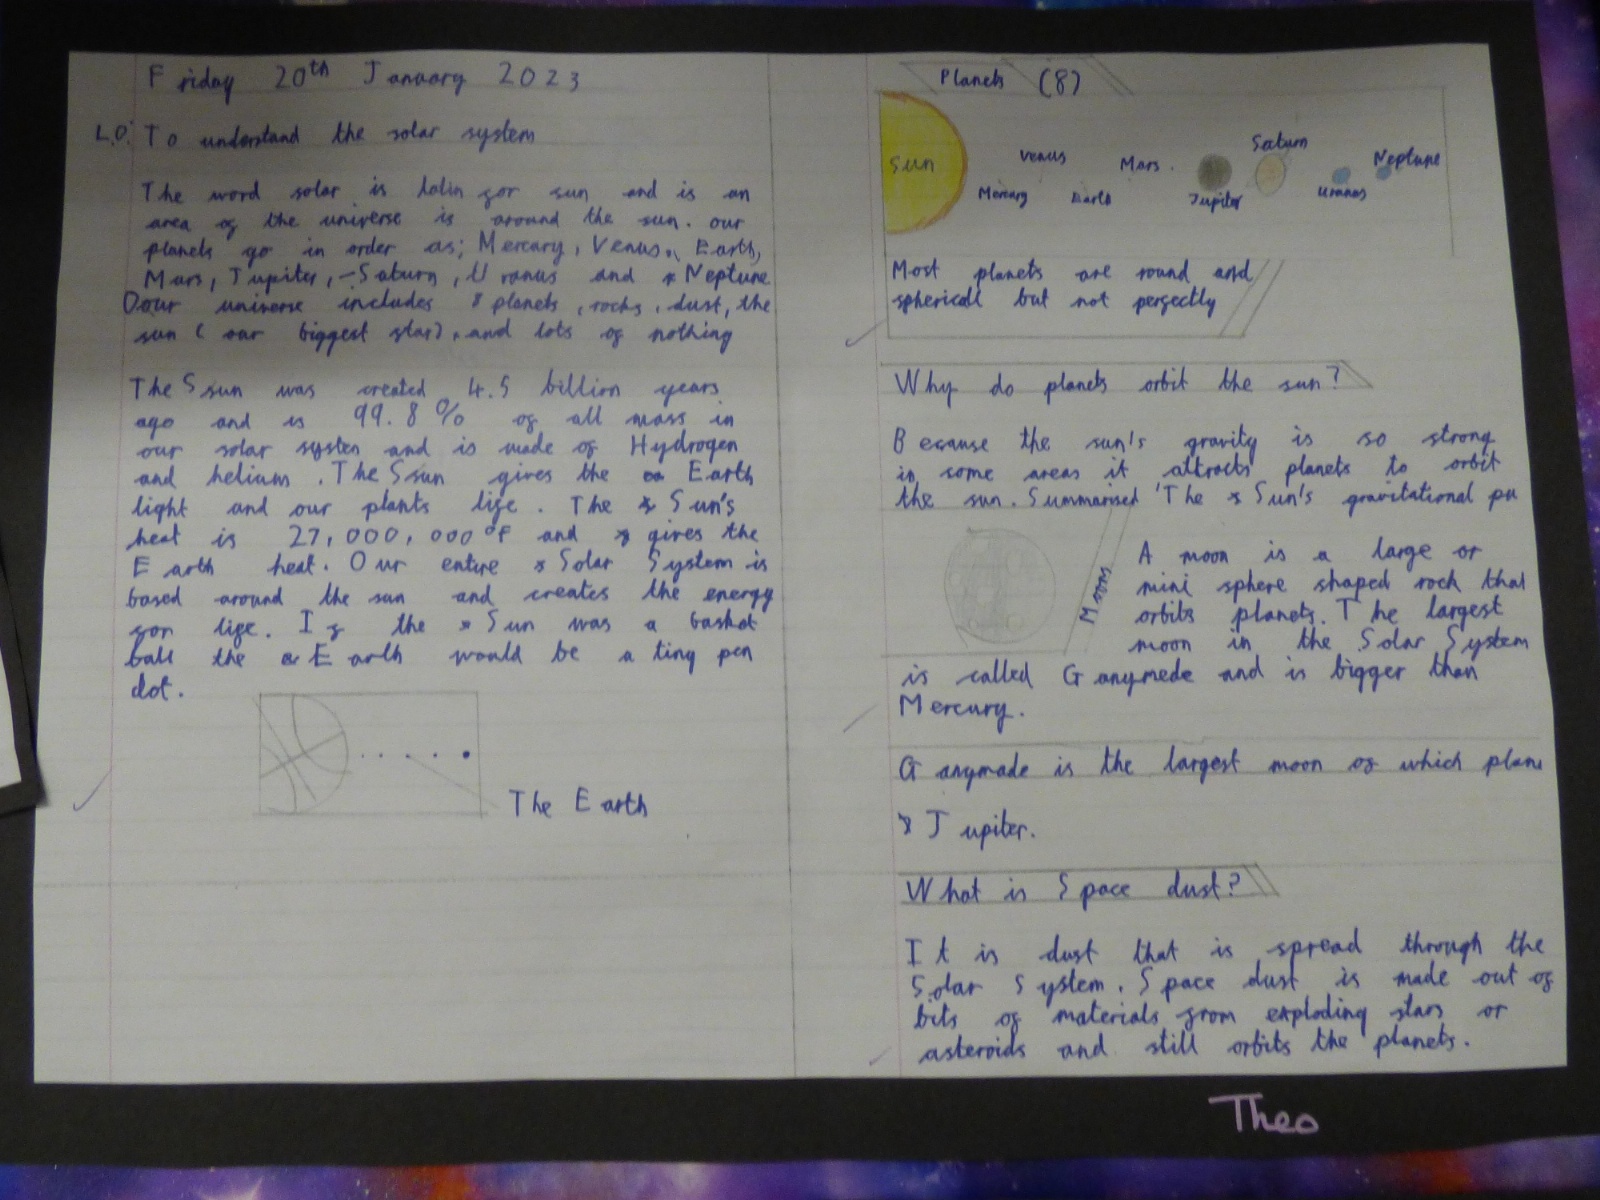 Friday 20th January 2023
L.O: To understand the solar system
The word solar is latin for sun and is an
area of the universe is around the sun. our
planets go in order as; Mercury, Venus, Earth,
Mars, Jupiter, Saturn, Uranus and Neptune
Oour universe includes 8 planets, rocks, dust, the
sun (our biggest star), and lots of nothing
The Ssun was created 4.5 billion years
ago and is 99.8% of all mass in
our solar system and is made of Hydrogen
and helium. The Ssun gives the Earth
light and our plants life. The Sun's
heat is 27,000,000°F and gives the
Earth heat. Our entire Solar System is
based around the sun and creates the energy
for life. If the Sun was a basket
ball the Earth would be a tiny pen
dot.
The Earth
Planets (8)
Sun
Mercury
Venus
Earth
Mars
Jupiter
Saturn
Uranus
Neptune
Most planets are round and
sphericall but not perfectly
Why do planets orbit the sun?
Because the sun's gravity is so strong
in some areas it attracts planets to orbit
the sun. Summarised 'The Sun's gravitational pu
Moons
A moon is a large or
mini sphere shaped rock that
orbits planets. The largest
moon in the Solar System
is called Ganymede and is bigger than
Mercury.
Ganymade is the largest moon of which plane
Jupiter.
What is Space dust?
It is dust that is spread through the
Solar System. Space dust is made out of
bits of materials from exploding stars or
asteroids and still orbits the planets.
Theo